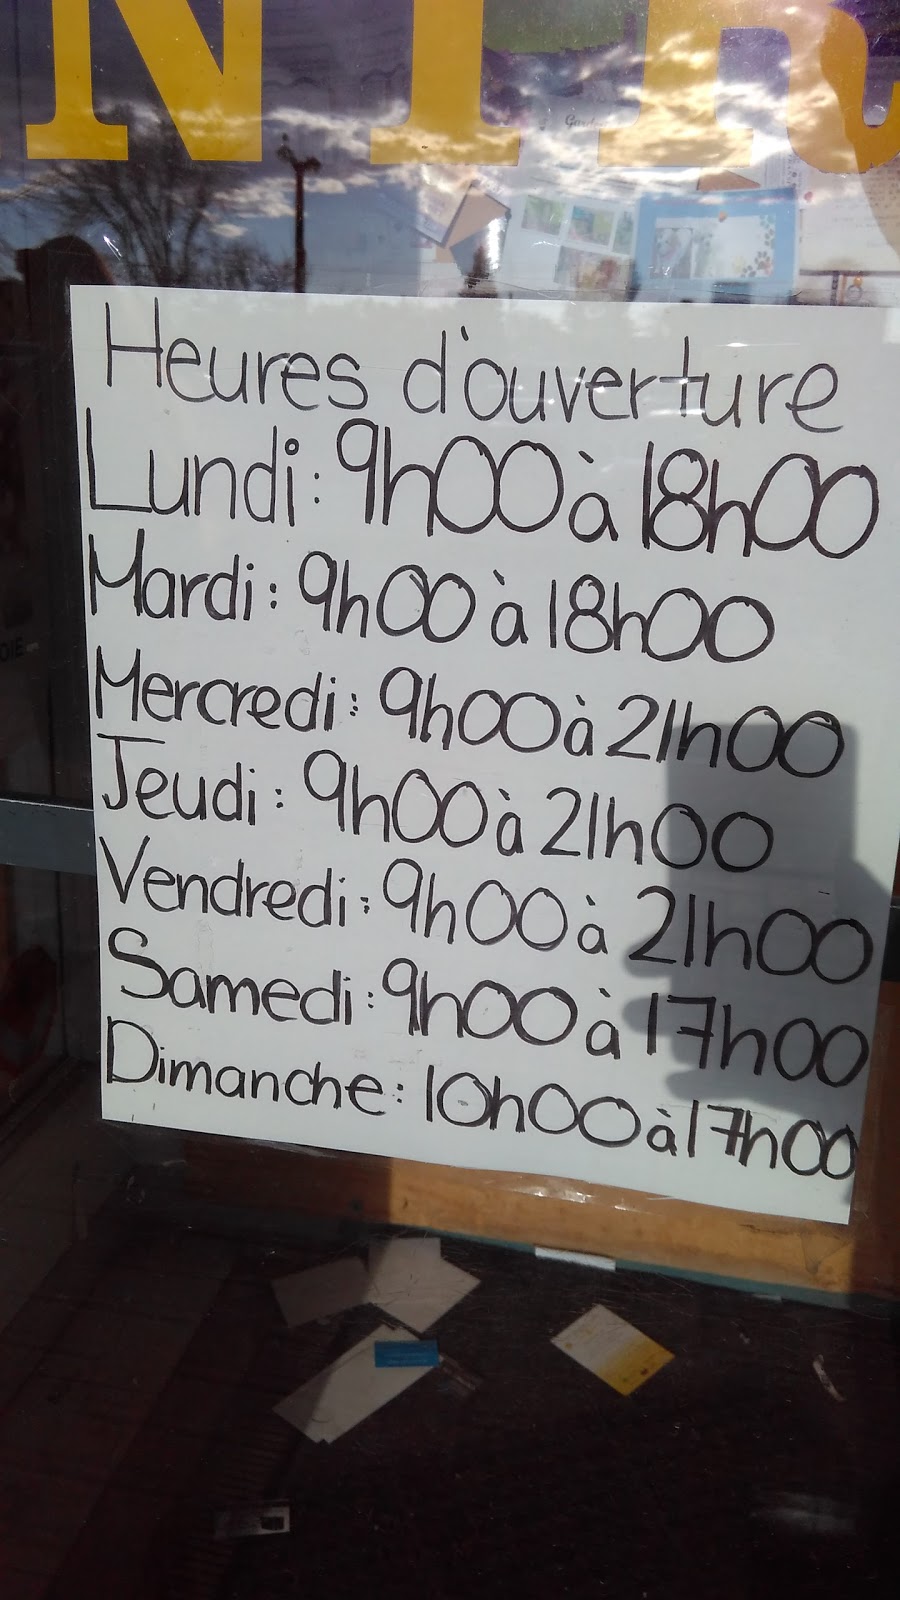 NTR
Heures d'ouverture
Lundi: 9h00 à 18h00
Mardi: 9h00 à 18h00
Mercredi: 9h00 à 21h00
Jeudi: 9h00 à 21h00
Vendredi: 9h00 à 21h00
Samedi: 9h00 à 17h00
Dimanche: 10h00 à 17h00